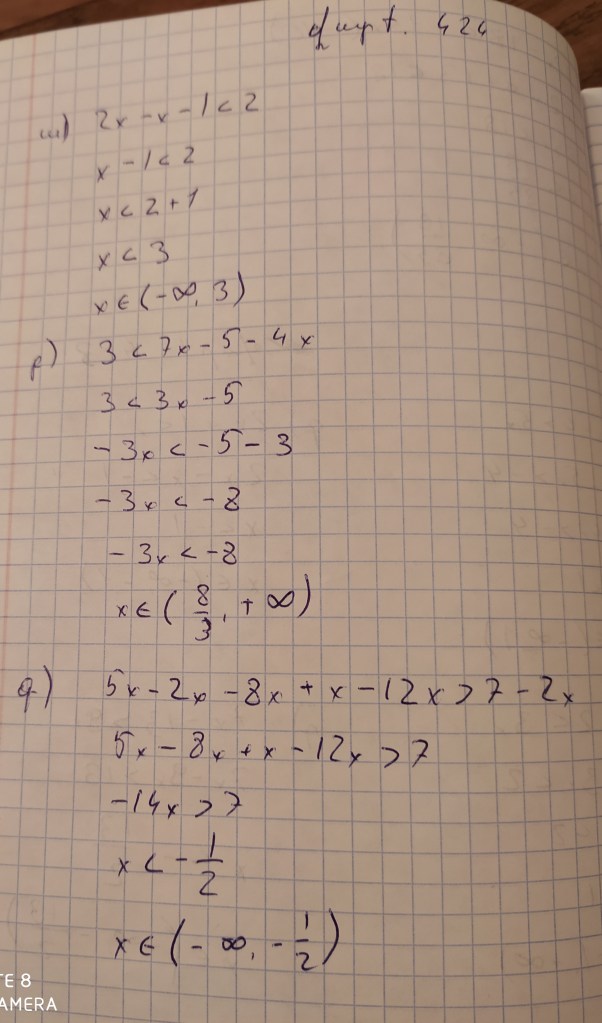 վարժ. 424
ա) 2x - x - 1 < 2
x - 1 < 2
x < 2 + 1
x < 3
x ∈ (-∞, 3)
բ) 3 < 7x - 5 - 4x
3 < 3x - 5
-3x < -5 - 3
-3x < -8
-3x < -8
x ∈ (8/3, +∞)
գ) 5x - 2x - 8x + x - 12x > 7 - 2x
5x - 8x + x - 12x > 7
-14x > 7
x < -1/2
x ∈ (-∞, -1/2)
TE 8
AMERA